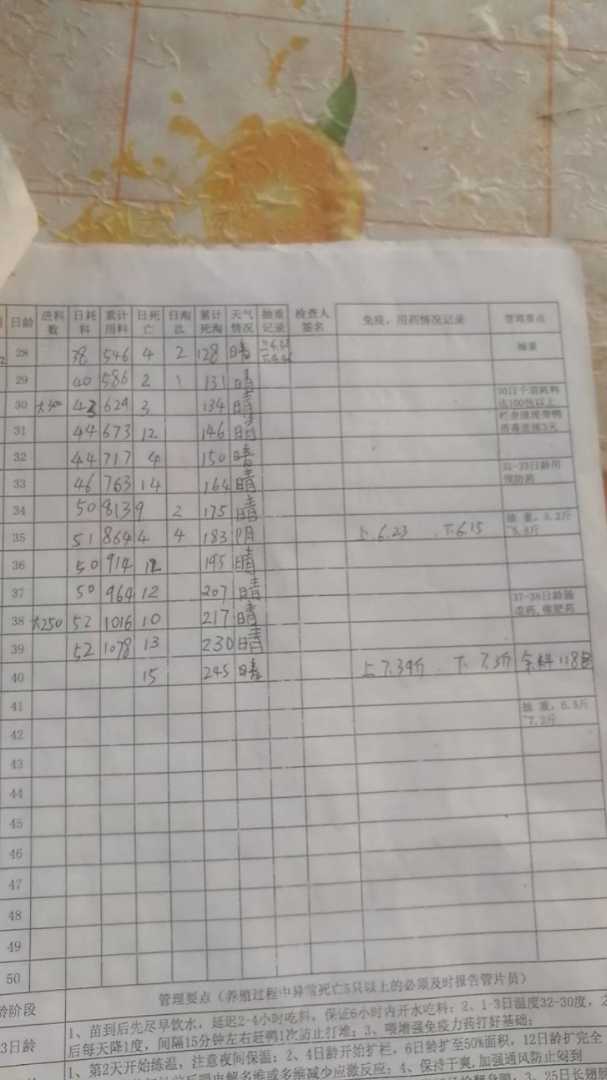 日龄 进料数 日耗料 累计用料 日死亡 日淘汰 累计死淘 天气情况 抽重记录 检查人签名 免疫、用药情况记录 管理要点
28 38 546 4 2 128 晴 抽重
29 40 586 2 1 131 晴
30 大40 43 629 3 134 晴
31 44 673 12 146 晴
32 44 717 4 150 晴
33 46 763 14 164 晴
34 50 813 9 2 175 晴
35 51 864 4 4 183 阴 上6.23 下6.15
36 50 914 12 195 晴
37 50 964 12 207 晴
38 大250 52 1016 10 217 晴
39 52 1078 13 230 晴
40 15 245 晴 上7.39斤 下7.3斤 余料118包
41
42
43
44
45
46
47
48
49
50
龄阶段 管理要点（养殖过程中异常死亡5只以上的必须及时报告管片员）
3日龄 1、苗到后先尽早饮水，延迟2-4小时吃料，保证6小时内开水吃料；2、1-3日温度32-30度，2
后每天降1度，间隔15分钟左右赶鸭1次防止打堆；3、喂增强免疫力药打好基础；
1、第2天开始练温，注意夜间保温；2、4日龄开始扩栏，6日龄扩至50%面积，12日龄扩完全
4、保持干爽，加强通风防止闷到